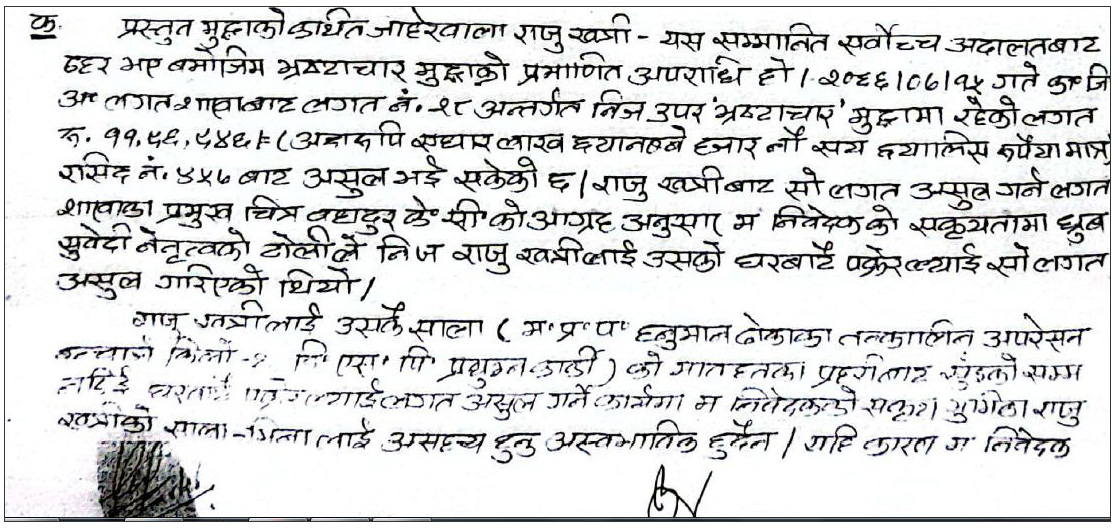 क. प्रस्तुत मुद्दाको कथित जाहेरवाला राजु खत्री - यस सम्मानित सर्वोच्च अदालतबाट
ठहर भए बमोजिम भ्रष्टाचार मुद्दाको प्रमाणित अपराधि हो । २०६६।०६।१५ गते का॰ जि
अ॰ लगत शाखाबाट लगत नं. २८ अन्तर्गत निज उपर 'भ्रष्टाचार' मुद्दामा रहेको लगत
रु. ११,९६,९४६।- (अक्षरुपि एघार लाख छयानब्बे हजार नौ सय छयालिस रुपैया मात्र
रसिद नं. ४५७ बाट असुल भई सकेको छ । राजु खत्रीबाट सो लगत असुल गर्न लगत
शाखाका प्रमुख चित्र बहादुर के॰ सी॰ को आग्रह अनुसार म निवेदकको सकृयतामा ध्रुब
सुवेदी नेतृत्वको टोलीले निज राजु खत्रीलाई उसको घरबाटै पक्रेर ल्याई सो लगत
असुल गरिएको थियो ।
राजु खत्रीलाई उसकै साला ( म॰ प्र॰ प॰ हनुमान ढोकाका तत्कालिन अपरेसन
डि॰ एस॰ पि॰ प्रधुम्न कार्की ) को मातहतका प्रहरीबाट
घरबाटै ल्याई लगत असुल गर्ने कार्यमा म निवेदकको राजु
खत्रीको साला-भिना लाई असह्य हुनु अस्वभाविक हुदैन । यहि कारण म निवेदक